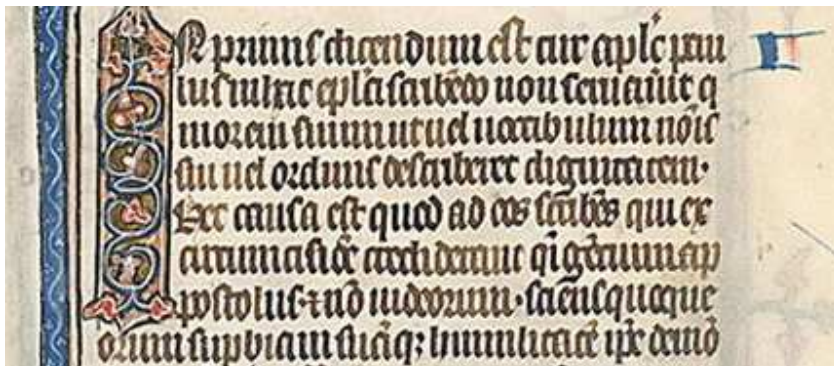 IN primis dicendum est cur apl'c pau
lus in hac epl'a scribēdo non seruauit q
morem suum ut uel uocabulum nōis
sui uel ordinis describeret dignitatem.
Hec causa est quod ad eos scribēs qui ex
circumcisiōe crediderant q̄i gentium ap
postolus ⁊ nō iudeorum. sciens quoque
orum supbiam suāq; humilitatē ip̄e demō